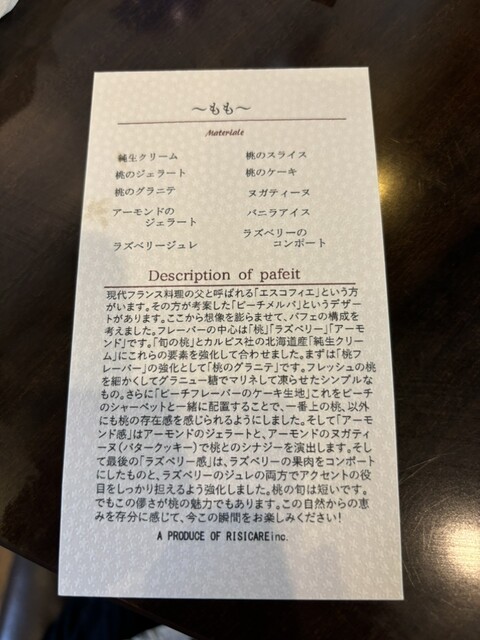 ～もも～
Materiale
純生クリーム
桃のスライス
桃のジェラート
桃のケーキ
桃のグラニテ
ヌガティーヌ
アーモンドの
ジェラート
バニラアイス
ラズベリージュレ
ラズベリーの
コンポート
Description of pafeit
現代フランス料理の父と呼ばれる「エスコフィエ」という方
がいます。その方が考案した「ピーチメルバ」というデザー
トがあります。ここから想像を膨らませて、パフェの構成を
考えました。フレーバーの中心は「桃」「ラズベリー」「アーモ
ンド」です。「旬の桃」とカルピス社の北海道産「純生クリー
ム」にこれらの要素を強化して合わせました。まずは「桃フ
レーバー」の強化として「桃のグラニテ」です。フレッシュの桃
を細かくしてグラニュー糖でマリネして凍らせたシンプルな
もの。さらに「ピーチフレーバーのケーキ生地」これをピーチ
のシャーベットと一緒に配置することで、一番上の桃、以外
にも桃の存在感を感じられるようにしました。そして「アーモ
ンド感」はアーモンドのジェラートと、アーモンドのヌガティ
ーヌ(バタークッキー)で桃とのシナジーを演出します。そし
て最後の「ラズベリー感」は、ラズベリーの果肉をコンポート
にしたものと、ラズベリーのジュレの両方でアクセントの役
目をしっかり担えるよう強化しました。桃の旬は短いです。
でもこの儚さが桃の魅力でもあります。この自然からの恵
みを存分に感じて、今この瞬間をお楽しみください!
A PRODUCE OF RISICAREinc.